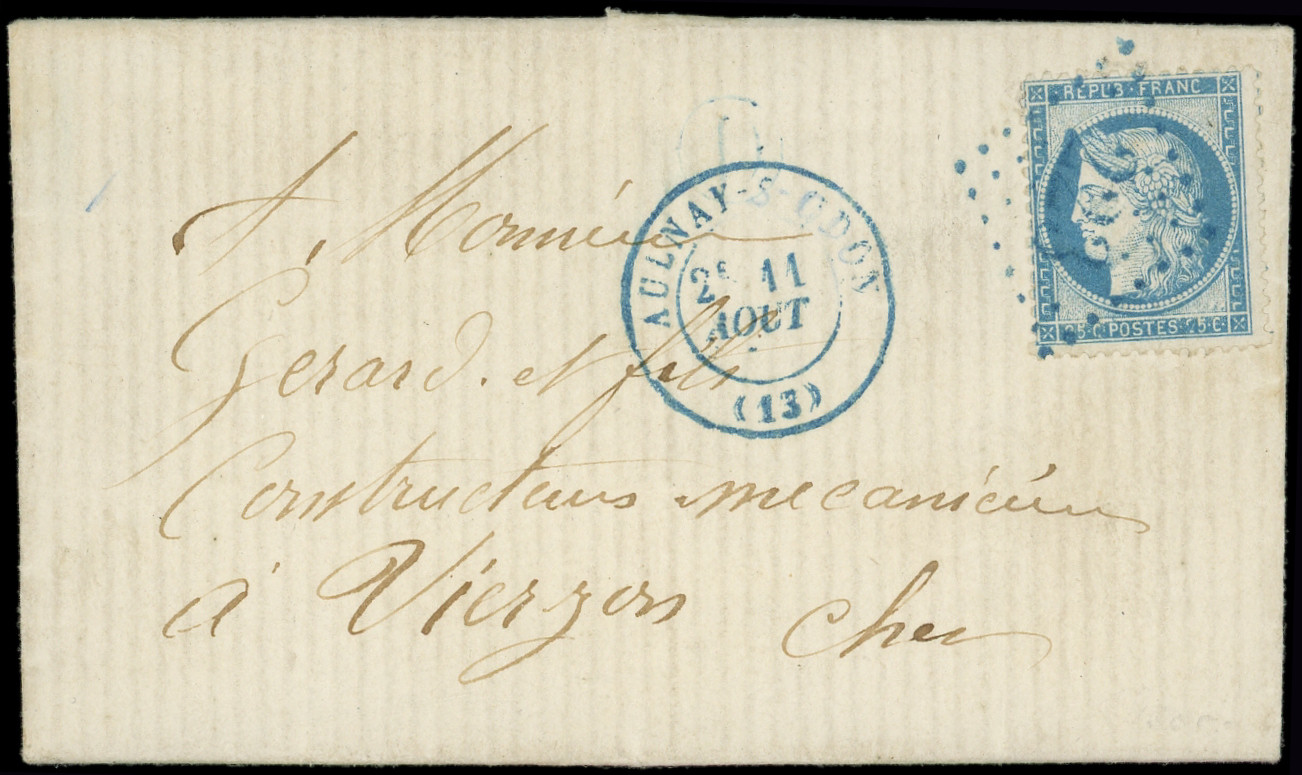 REPUB·FRANC
25·C·POSTES·25·C·
AULNAY-S-ODON
2E 11
AOUT
(13)
A Monsieur
Gerard. et fils
Constructeurs mecaniciens
à Vierzon Cher